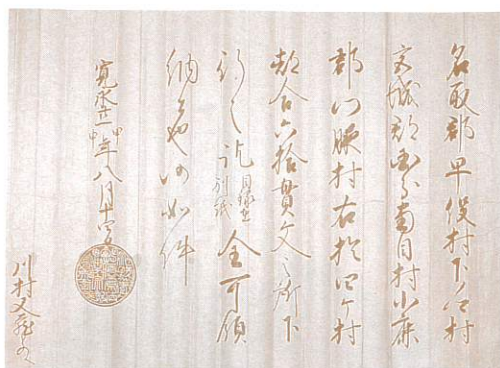 名取郡早股村下ノ郷村
宮城郡国分南目村小鹿
郡門脇村右於四ケ村
都合六拾貫文之所下
行之訖目録在別紙全可領
納者也仍如件
寛永廿一年甲申八月十四日
川村又